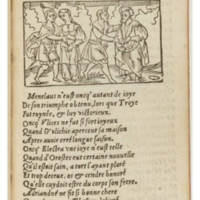 Menelaus n'eust oncq' autant de ioye
De son triumphe obtenu, lors que Troye
Fut ruynée, & luy victorieux.
Oncq' Vlices ne fut si fort ioyeux
Quand d'Vlichie apercent sa maison
Apres auoir erré longue saison,
Oncq' Electra vne ioye n'eust telle
Quand d'Orestes eut certaine nouuelle
Qu'il estoit sain, a tort l'ayant ploré
Et trop deceue, at en cendrer honoré
Qu'elle cuydoit estre du corps son frere,
Ariadné ne fit si bonne chere